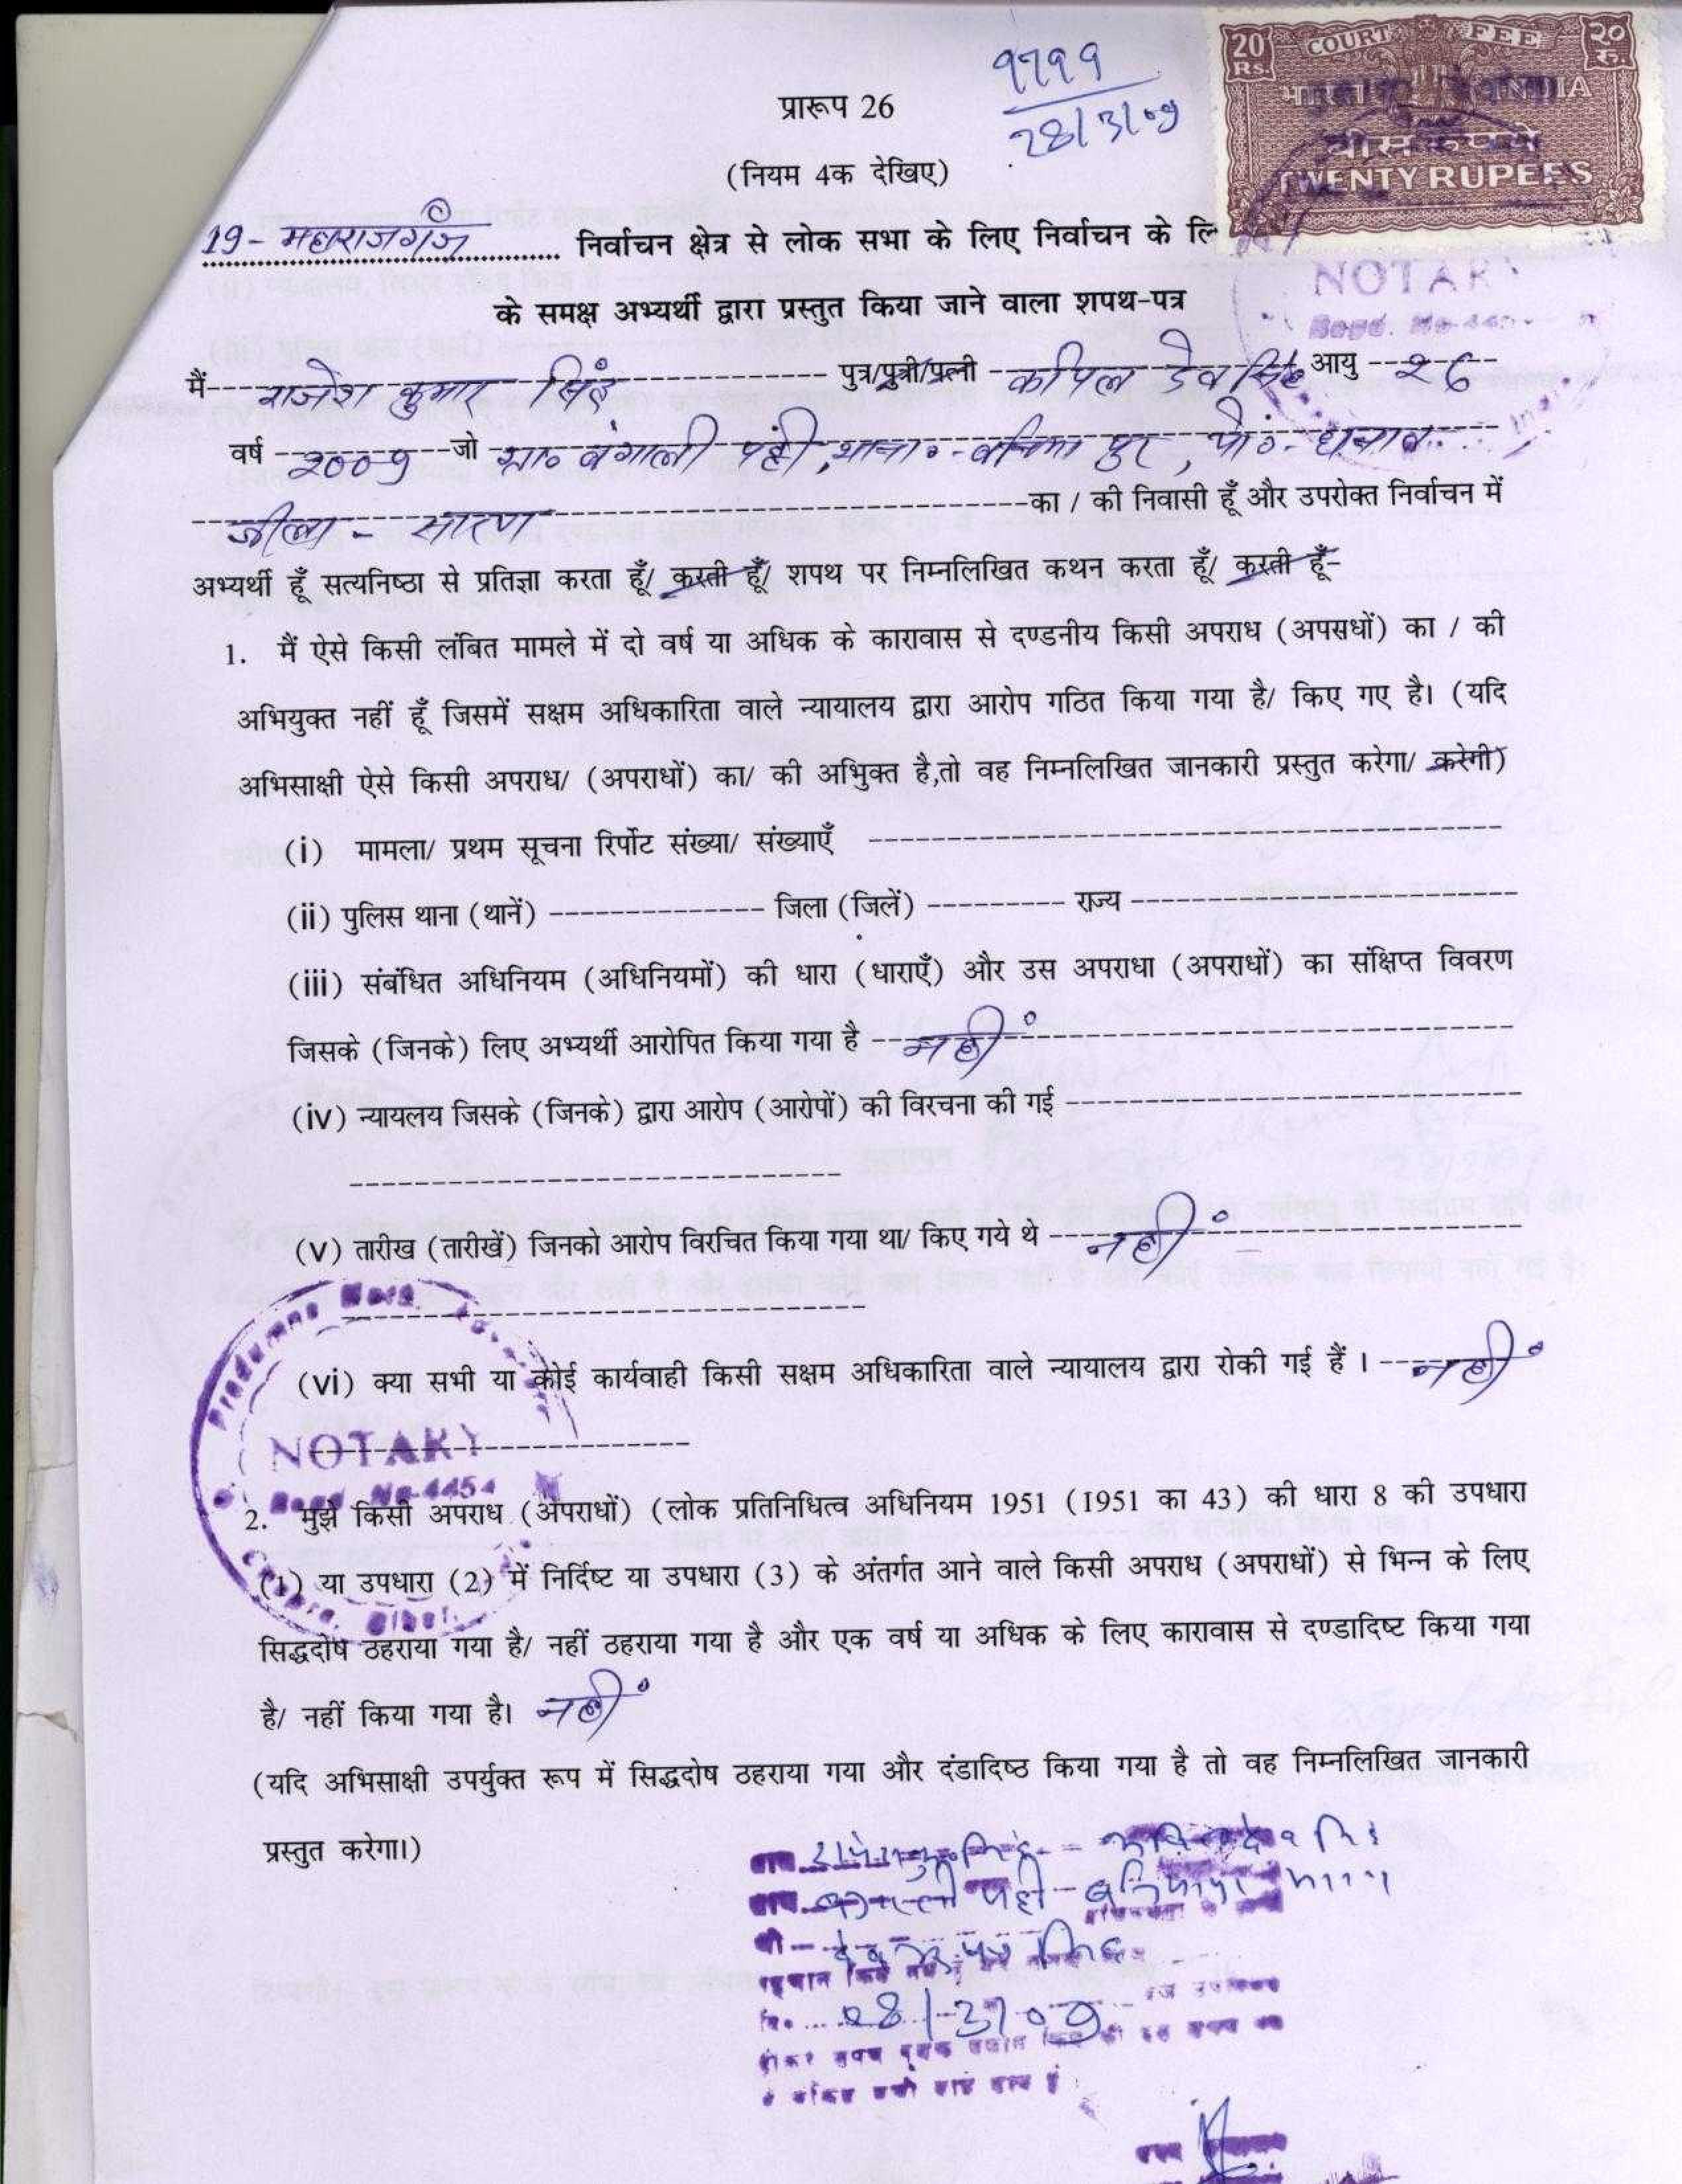 प्रारूप 26
9799
28/3/09
20 Rs. COURT FEE २० रु.
INDIA
बीस रुपये
TWENTY RUPEES
(नियम 4क देखिए)
19- महाराजगंज निर्वाचन क्षेत्र से लोक सभा के लिए निर्वाचन के लि
NOTARY
के समक्ष अभ्यर्थी द्वारा प्रस्तुत किया जाने वाला शपथ-पत्र
मैं राजेश कुमार सिंह पुत्र/पुत्री/पत्नी कपिल देव सिंह आयु २६
वर्ष २००९ जो ग्रा० बंगाली पट्टी, थाना०- बनियापुर, पो०- धनाव
जीला - सारण का / की निवासी हूँ और उपरोक्त निर्वाचन में
अभ्यर्थी हूँ सत्यनिष्ठा से प्रतिज्ञा करता हूँ/ करती हूँ/ शपथ पर निम्नलिखित कथन करता हूँ/ करती हूँ-
1. मैं ऐसे किसी लंबित मामले में दो वर्ष या अधिक के कारावास से दण्डनीय किसी अपराध (अपसधों) का / की
अभियुक्त नहीं हूँ जिसमें सक्षम अधिकारिता वाले न्यायालय द्वारा आरोप गठित किया गया है/ किए गए है। (यदि
अभिसाक्षी ऐसे किसी अपराध/ (अपराधों) का/ की अभिुक्त है,तो वह निम्नलिखित जानकारी प्रस्तुत करेगा/ करेगी)
(i) मामला/ प्रथम सूचना रिर्पोट संख्या/ संख्याएँ
(ii) पुलिस थाना (थानें) जिला (जिलें) राज्य
(iii) संबंधित अधिनियम (अधिनियमों) की धारा (धाराएँ) और उस अपराधा (अपराधों) का संक्षिप्त विवरण
जिसके (जिनके) लिए अभ्यर्थी आरोपित किया गया है नहीं
(iv) न्यायलय जिसके (जिनके) द्वारा आरोप (आरोपों) की विरचना की गई
(v) तारीख (तारीखें) जिनको आरोप विरचित किया गया था/ किए गये थे नहीं
(vi) क्या सभी या कोई कार्यवाही किसी सक्षम अधिकारिता वाले न्यायालय द्वारा रोकी गई हैं । नहीं
NOTARY
Regd. No-4454
2. मुझे किसी अपराध (अपराधों) (लोक प्रतिनिधित्व अधिनियम 1951 (1951 का 43) की धारा 8 की उपधारा
(1) या उपधारा (2) में निर्दिष्ट या उपधारा (3) के अंतर्गत आने वाले किसी अपराध (अपराधों) से भिन्न के लिए
सिद्धदोष ठहराया गया है/ नहीं ठहराया गया है और एक वर्ष या अधिक के लिए कारावास से दण्डादिष्ट किया गया
है/ नहीं किया गया है। नहीं
(यदि अभिसाक्षी उपर्युक्त रूप में सिद्धदोष ठहराया गया और दंडादिष्ठ किया गया है तो वह निम्नलिखित जानकारी
प्रस्तुत करेगा।)
28/3/09